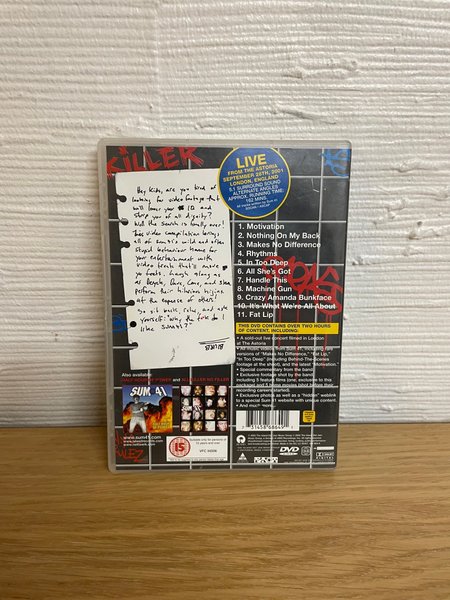 KILLER
LIVE
FROM THE ASTORIA
SEPTEMBER 28TH, 2001
LONDON, ENGLAND
5.1 SURROUND SOUND
ALTERNATE ANGLES
APPROX. RUNNING TIME:
162 MINS.
Hey kids, are you tired of
looking for video footage that
will lower your IQ and
strip you of all dignity?
Well the search is finally over!
This video compilation brings
all of sum41's wild and often
stupid behaviour home for
your entertainment with
video
you
as
perform their hilarious hijinx
at the expense of others!
So sit back, relax, and ask
yourself: why the do I
like SUM41?
1. Motivation
2. Nothing On My Back
3. Makes No Difference
4. Rhythms
5. In Too Deep
6. All She's Got
7. Handle This
8. Machine Gun
9. Crazy Amanda Bunkface
10. It's What We're All About
11. Fat Lip
THIS DVD CONTAINS OVER TWO HOURS OF
CONTENT, INCLUDING:
• A sold-out live concert filmed in London
at The Astoria
versions of "Makes No Difference," "Fat Lip,"
"In Too Deep" (including Behind-The-Scenes
footage at the shoot), and the latest "Motivation"
• Special commentary from the band
• Exclusive footage shot by the band,
including 5 feature films (one, exclusive to this
package and 3
recording career started).
• Exclusive photos as well as a "hidden" weblink
to a special Sum 41 website with unique content.
• And much more...
Also available:
HALF HOUR OF POWER and ALL KILLER NO FILLER
SUM 41
www.sum41.com
15
Suitable only for persons of
15 years and over
DVD